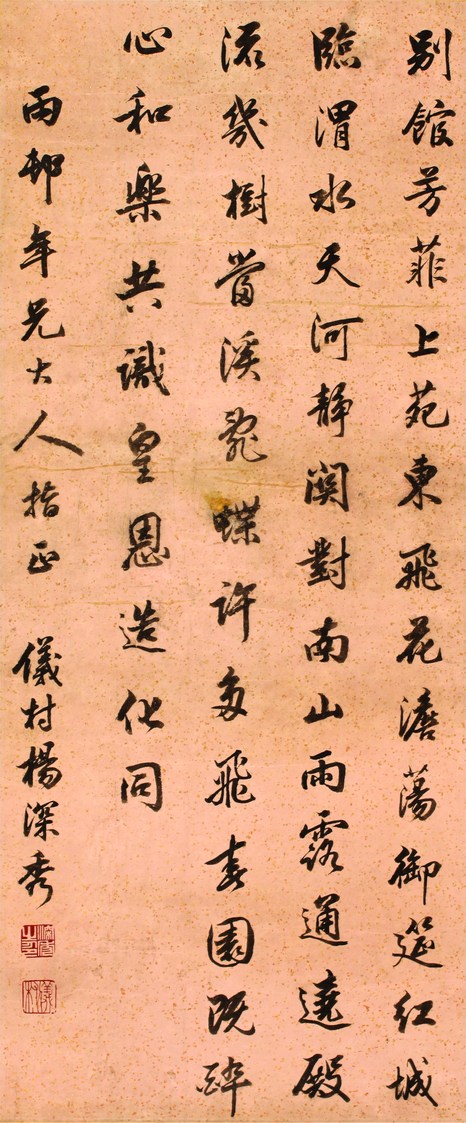 别館芳菲上苑東飛花澹蕩御筵紅城
臨渭水天河静闕對南山雨露通遶殿
流幾樹當溪亂蝶許多飛春園既醉
心和樂共識皇恩造化同
雨邨年兄大人指正 儀村楊深秀
深秀之印
儀村